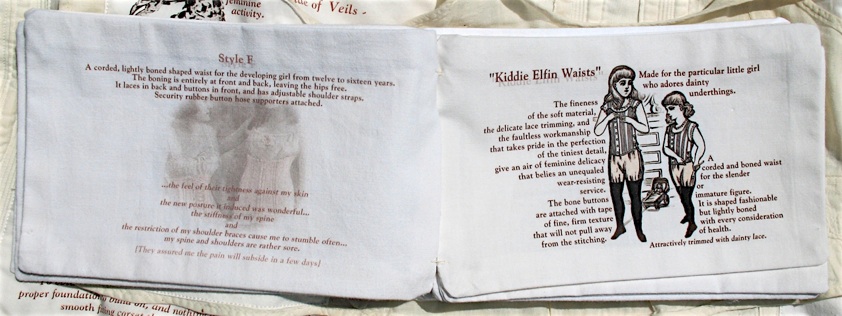 feminine
activity.
e of Veils -
Style F
A corded, lightly boned shaped waist for the developing girl from twelve to sixteen years.
The boning is entirely at front and back, leaving the hips free.
It laces in back and buttons in front, and has adjustable shoulder straps.
Security rubber button hose supporters attached.
...the feel of their tightness against my skin
and
the new posture it induced was wonderful...
the stiffness of my spine
and
the restriction of my shoulder braces cause me to stumble often...
my spine and shoulders are rather sore.
[They assured me the pain will subside in a few days]
"Kiddie Elfin Waists"
Made for the particular little girl
who adores dainty
underthings.
The fineness
of the soft material,
the delicate lace trimming, and
the faultless workmanship
that takes pride in the perfection
of the tiniest detail,
give an air of feminine delicacy
that belies an unequaled
wear-resisting
service.
The bone buttons
are attached with tape
of fine, firm texture
that will not pull away
from the stitching.
A
corded and boned waist
for the slender
or
immature figure.
It is shaped fashionable
but lightly boned
with every consideration
of health.
Attractively trimmed with dainty lace.
proper foundation build on, and nothin
smooth